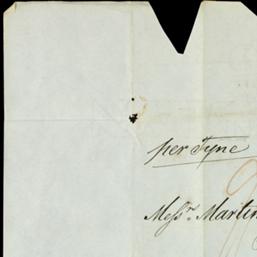 per Tyne
Messrs. Martin